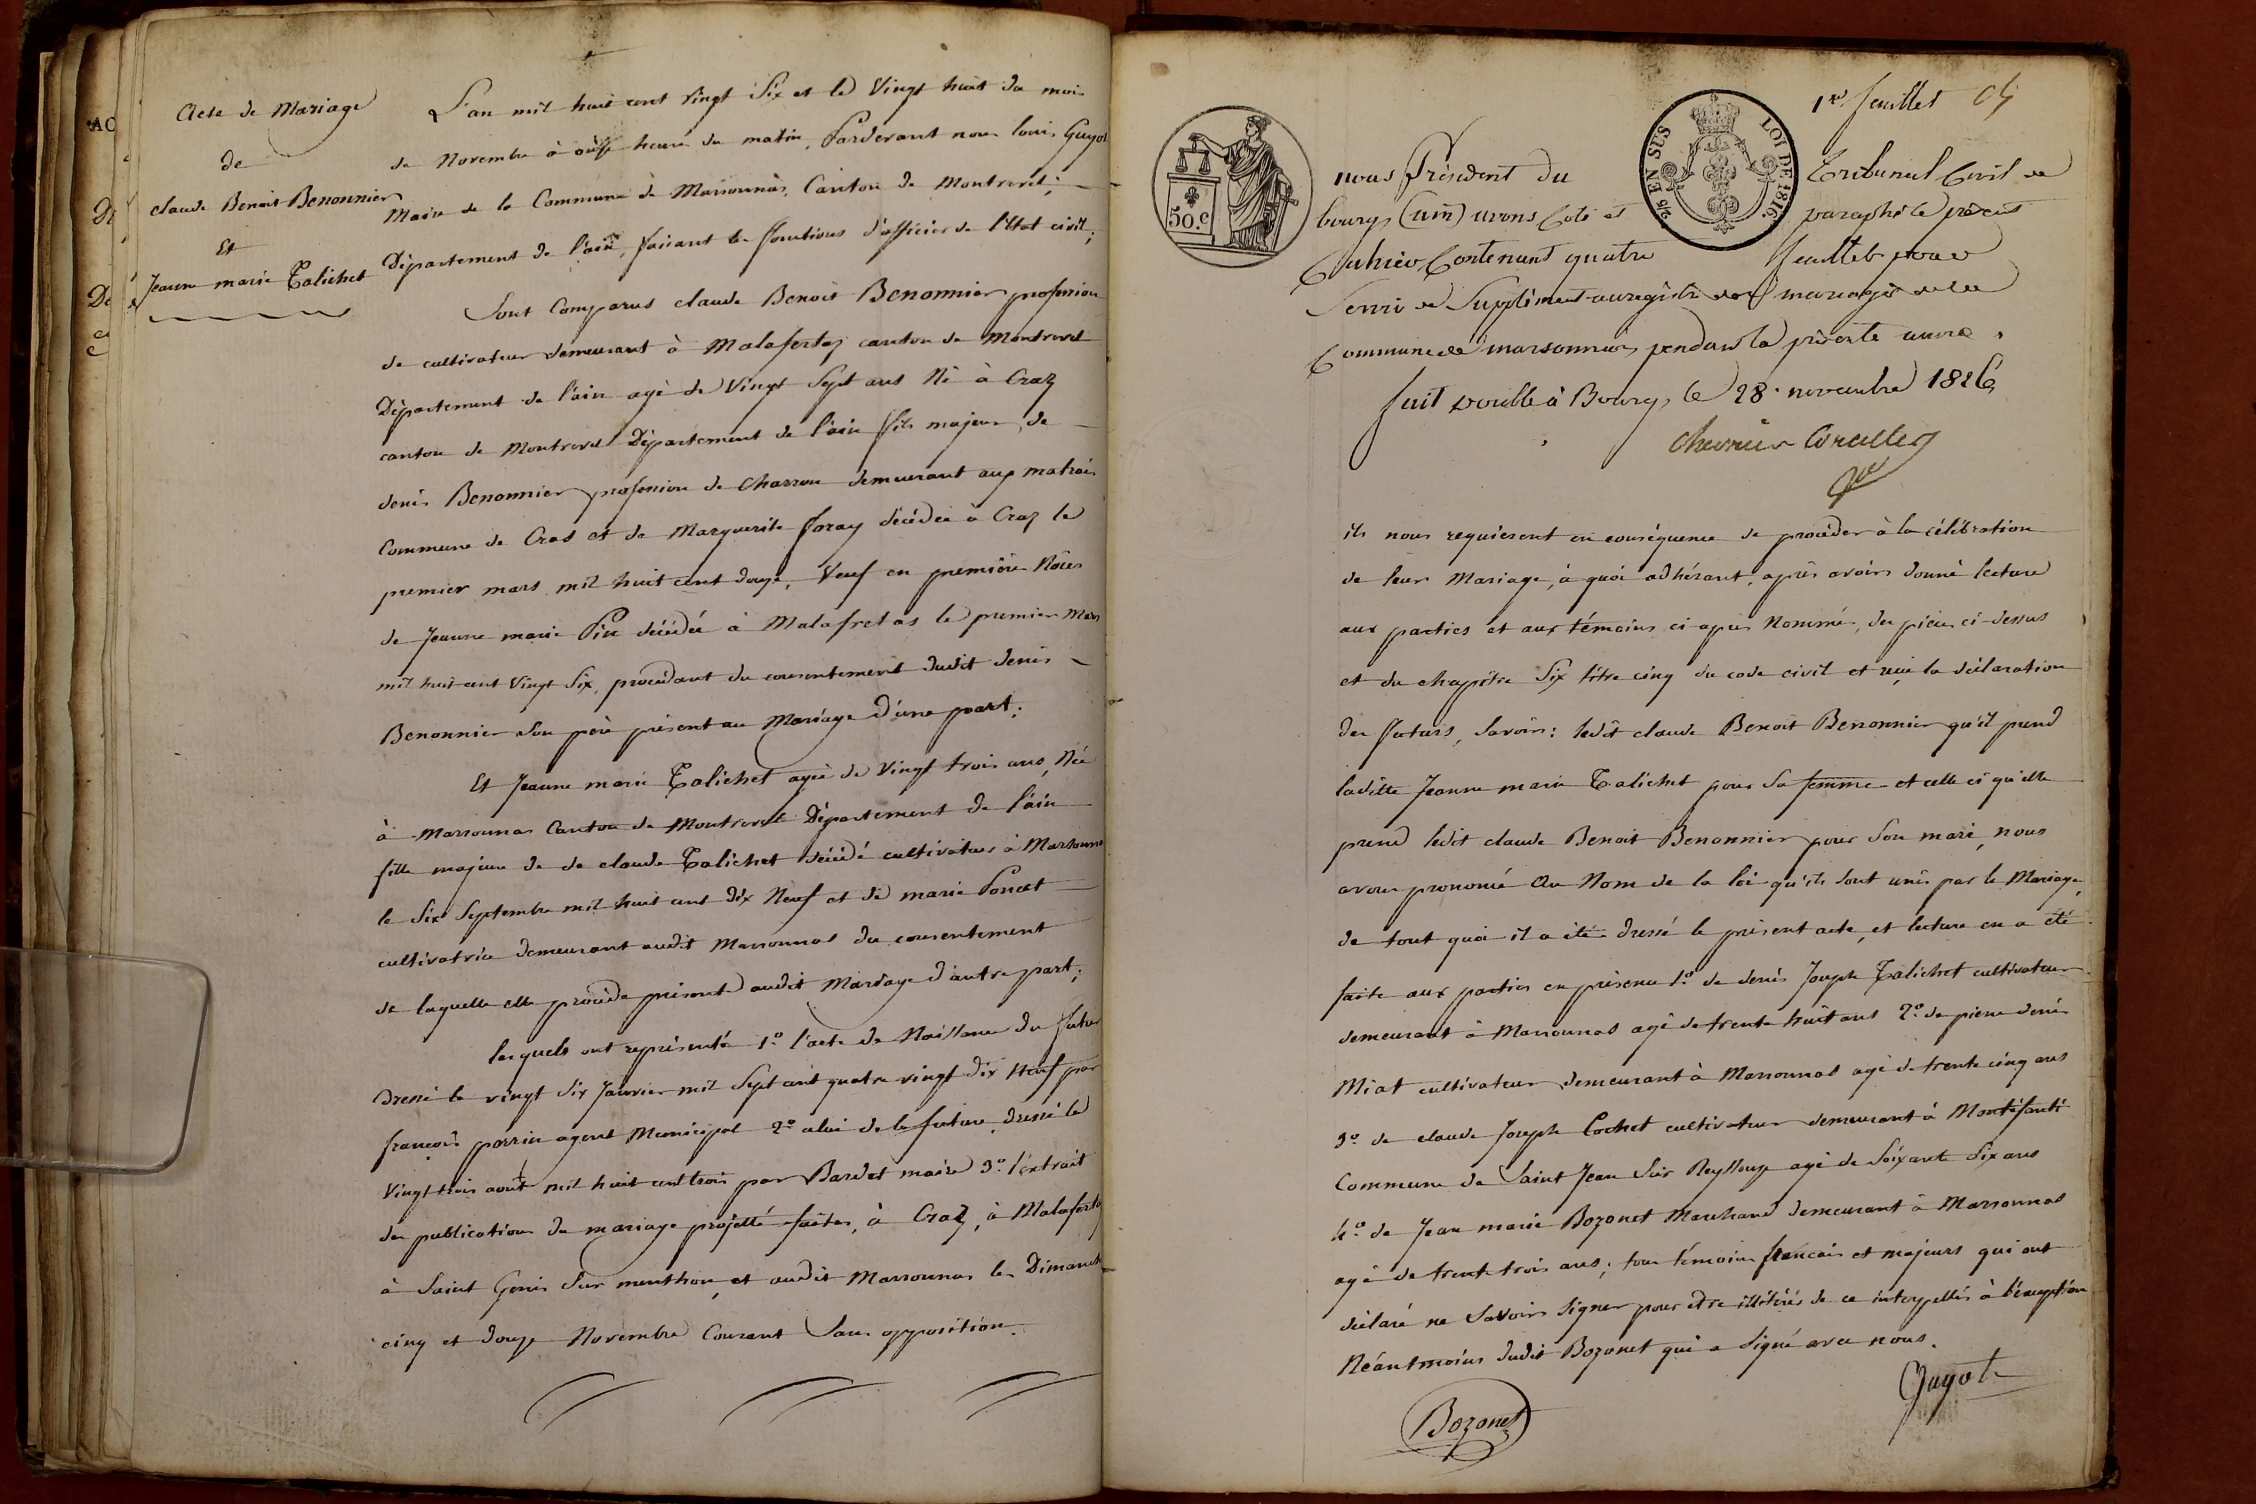 Acte de Mariage
de
claude Benoit Benonnier
Et
Jeanne marie Talichet
L'an mil huit cent vingt Six et le Vingt huit du mois
de Novembre à onze heure du matin, Pardevant nous louis Guyot
Maire de la Commune de Marsonnas, Canton de Montrevel,
Département de l'ain, faisant les fonctions d'officier de l'Etat civil;
Sont Comparus claude Benoit Benonnier profession
de cultivateur demeurant à Malafertaz canton de Montrevel
Département de l'ain agé de Vingt Sept ans Né à Craz
canton de Montrevel Département de l'ain fils majeur de
denis Benonnier profession de Charron demeurant aux matrais
Commune de Cras et de Marguerite foray décédée à Craz le
premier mars mil huit cent douze, Veuf en premiére Nôces
de Jeanne marie Pin décédée à Malafretas le premier Mars
mil huit cent Vingt Six, procédant du consentement dudit denis
Benonnier Son pére présent au Mariage d'une part;
Et Jeanne marie Talichet agée de Vingt trois ans, Née
à Marsonnas Canton de Montrevel Département de l'ain
fille majeure de de claude Talichet décédé cultivateur à Marsonnas
le Six Septembre mil huit cent dix Neuf et de marie Poncet
cultivatrice demeurant audit Marsonnas du consentement
de laquelle elle procéde présente audit Mariage d'autre part;
lesquels ont représenté 1º l'acte de Naissance du futur
Dressé le vingt six Janvier mil Sept cent quatre vingt dix Neuf par
françois perrin agent Municipal 2º celui de la future, dressé le
Vingt trois août mil huit cent trois par Bardet maire 3º l'extrait
des publications du mariage projetté faites, à Craz, à Malaferta
à Saint Genis Sur menthon, et audit Marsonnas les Dimanch
cinq et douze Novembre Courant Sans opposition.
1er feuillet
EN SUS
LOI DE 1816
50.c
nous Président du Tribunal Civil de
bourg (ain) avons Coté et paraphé le présent
Cahier Contenant quatre feuillets pour
Servir de Supplément au registre des mariages de la
Commune de marsonnas pendant la présente année.
fait double à Bourg, le 28 novembre 1826
ils nous requierent en conséquence de procéder à la célébration
de leur Mariage, à quoi adhérant, aprés avoir donné lecture
aux parties et aux témoins ci-aprés Nommés, des piéces ci-dessus
et du chapitre Six titre cinq du code civil et reçu la déclaration
des futurs, Savoir: ledit claude Benoit Benonnier qu'il prend
ladite Jeanne marie Talichet pour Sa femme et celle ci qu'elle
prend ledit claude Benoit Benonnier pour Son mari, nous
avons prononcé Au Nom de la loi qu'ils Sont unis par le Mariage,
de tout quoi il a été dressé le présent acte, et lecture en a été
faite aux parties en présence 1º de denis Joseph Talichet cultivateur
demeurant à Marsonnas agé de trente huit ans 2º de pierre denis
Miat cultivateur demeurant à Marsonnas agé de trente cinq ans
3º de claude Joseph Cochet cultivateur demeurant à Montéfanti
Commune de Saint Jean Sur Reyssouze agé de Soixante Six ans
4º de Jean marie Bozonet Marchand demeurant à Marsonnas
agé de trente trois ans; tous témoins francais et majeurs qui ont
déclaré ne Savoir Signer pour être illitérés de ce interpellés à l'éxception
Néantmoins dudit Bozonet qui a Signé avec nous.
Bozonet
Guyot